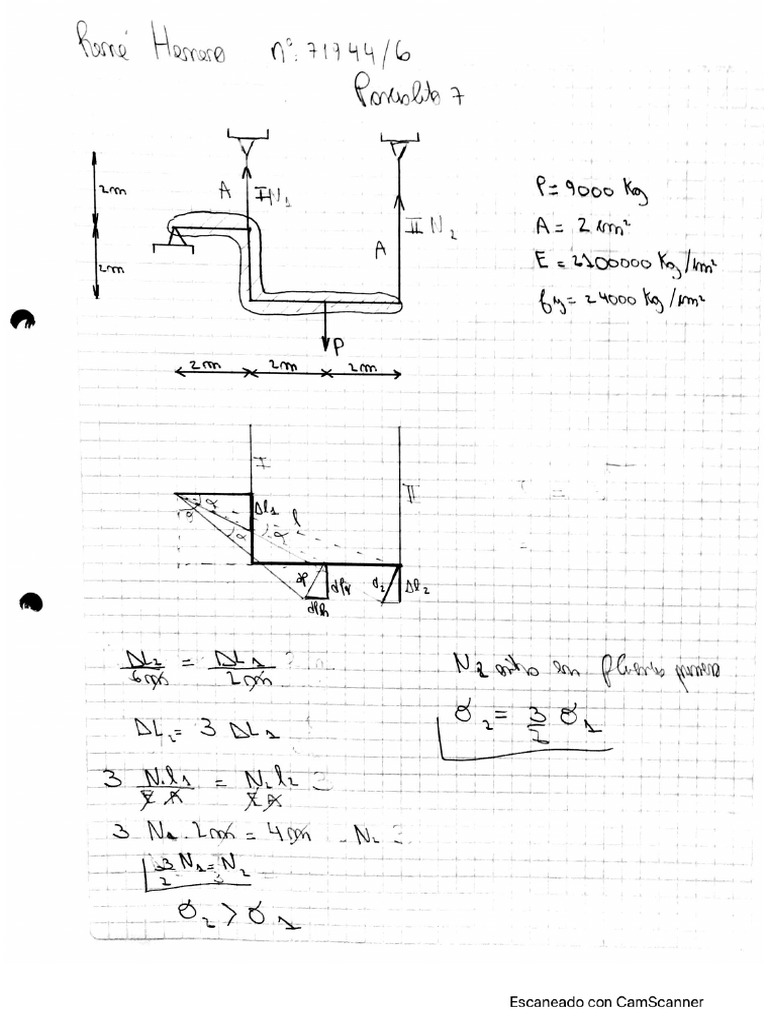 René Herrero nº: 71944/6
Parcialito 7
2m
A
I N₁
II N₂
A
2m
P
2m 2m 2m
P = 9000 Kg
A = 2 cm²
E = 2100000 Kg/cm²
fy = 24000 Kg/cm²
I
II
α
Δl₁
l
α
α
dP
dPv
dPh
d₂
Δl₂
ΔL₂/6m = ΔL₁/2m
ΔL₂ = 3 ΔL₁
3 N₁l₁/EA = N₂l₂/EA
3 N₁ · 2m = 4m · N₂
3/2 N₁ = N₂
σ₂ > σ₁
N₂ entra en fluencia primero
σ₂ = 3/2 σ₁
Escaneado con CamScanner